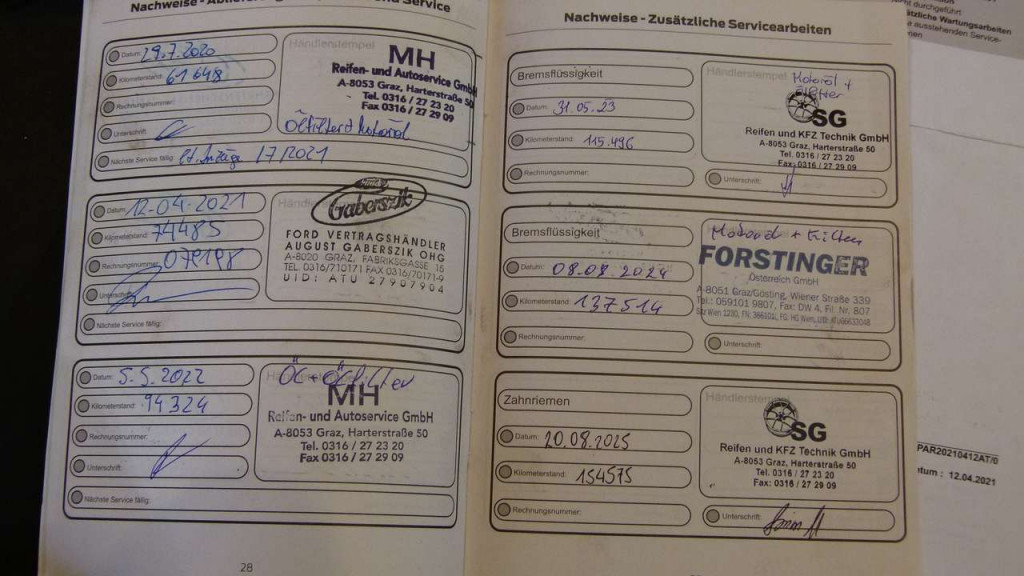 Nachweise -
und Service
Datum: 29.7.2020
Kilometerstand: 61648
Rechnungsnummer:
Unterschrift:
Nächste Service fällig: lt. Anzeige 17/2021
Händlerstempel
MH
Reifen- und Autoservice GmbH
A-8053 Graz, Harterstraße 50
Tel. 0316 / 27 23 20
Fax 0316 / 27 29 09
Ölfilter + Motoröl
Datum: 12-04-2021
Kilometerstand: 74485
Rechnungsnummer: 078198
Unterschrift:
Nächste Service fällig:
Ford
Gaberszik
FORD VERTRAGSHÄNDLER
AUGUST GABERSZIK OHG
A-8020 GRAZ, FABRIKSGASSE 16
TEL. 0316/710171 FAX 0316/710171-9
UID: ATU 27907904
Datum: 5.5.2022
Kilometerstand: 94324
Rechnungsnummer:
Unterschrift:
Nächste Service fällig:
Öl + Ölfilter
MH
Reifen- und Autoservice GmbH
A-8053 Graz, Harterstraße 50
Tel. 0316 / 27 23 20
Fax 0316 / 27 29 09
28
Nachweise - Zusätzliche Servicearbeiten
Bremsflüssigkeit
Datum: 31.05.23
Kilometerstand: 115.496
Rechnungsnummer:
Händlerstempel
Motoröl +
Filter
SG
Reifen und KFZ Technik GmbH
A-8053 Graz, Harterstraße 50
Tel. 0316 / 27 23 20
Fax: 0316 / 27 29 09
Unterschrift:
Bremsflüssigkeit
Datum: 08.08 2024
Kilometerstand: 137514
Rechnungsnummer:
Motoröl + Filter
FORSTINGER
Österreich GmbH
A-8051 Graz/Gösting, Wiener Straße 339
Tel.: 059101 9807, Fax: DW 4, Fil. Nr. 807
Unterschrift:
Zahnriemen
Datum: 20.08.2025
Kilometerstand: 154575
Rechnungsnummer:
Händlerstempel
SG
Reifen und KFZ Technik GmbH
A-8053 Graz, Harterstraße 50
Tel. 0316 / 27 23 20
Fax: 0316 / 27 29 09
Unterschrift:
nicht durchgeführt
ätzliche Wartungsarbeiten
ausstehenden Service-
PAR20210412AT/0
tum : 12.04.2021